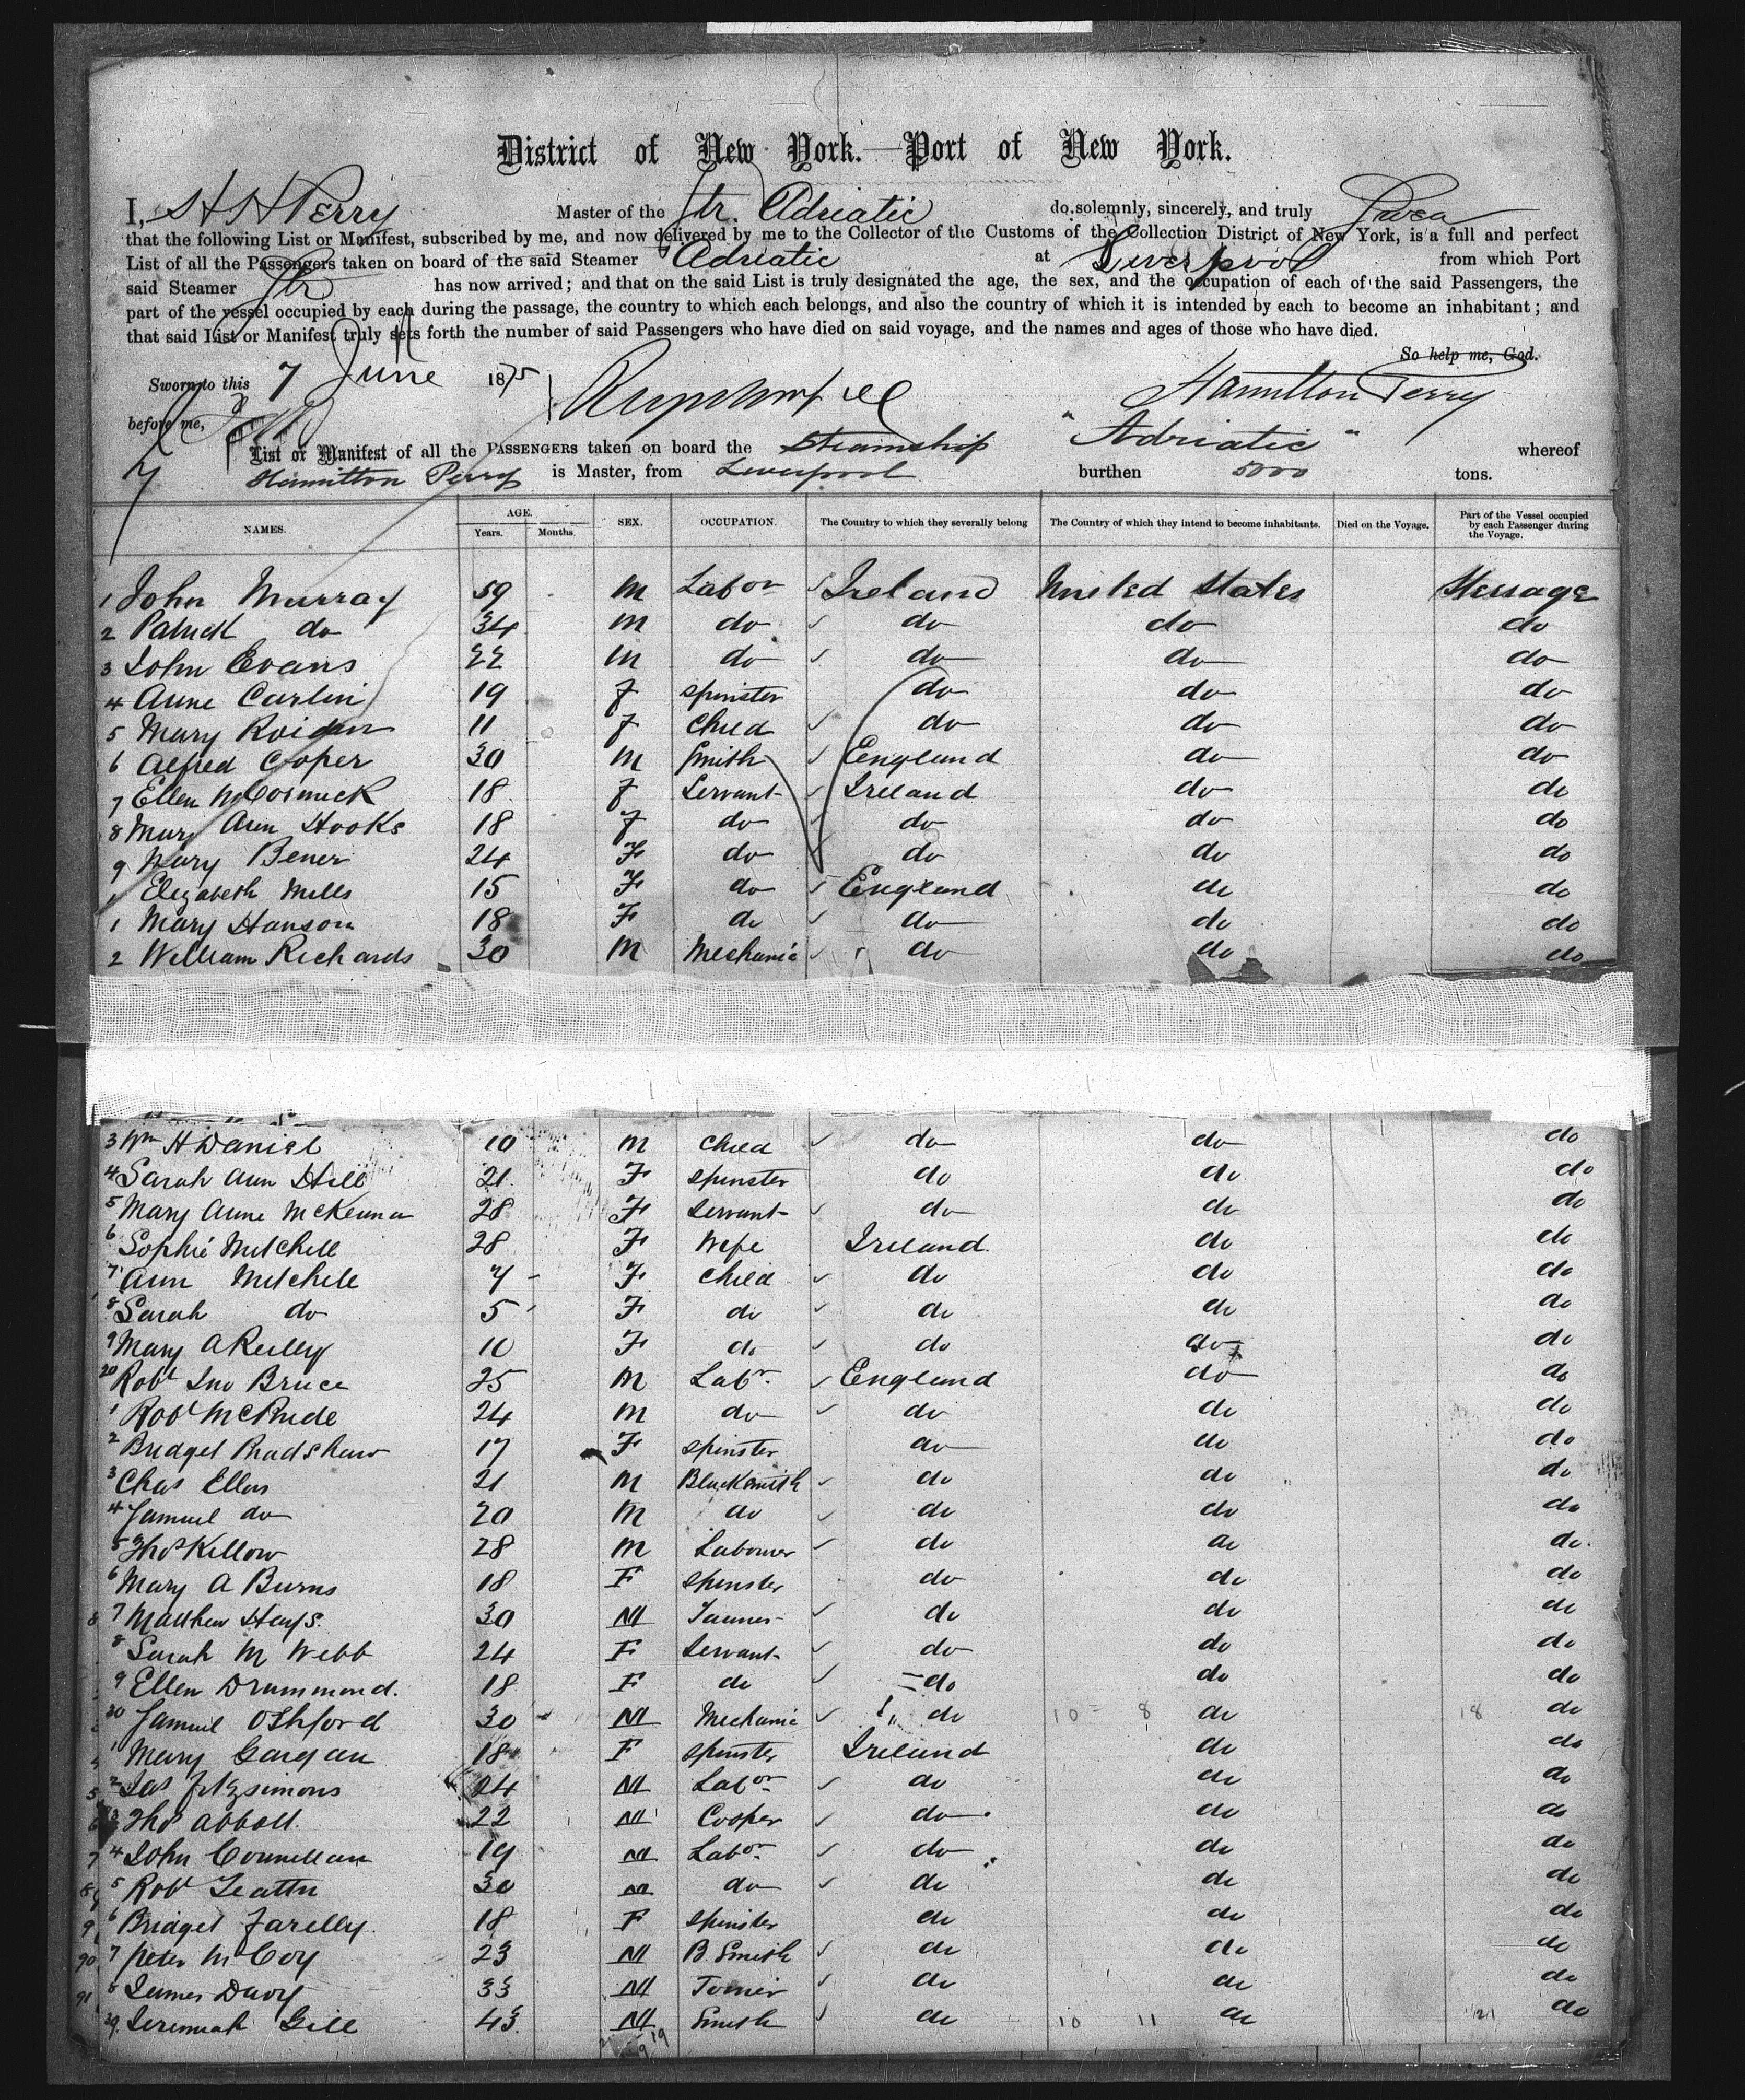 District of New York.—Port of New York.
I, H H Perry Master of the Str. Adriatic do solemnly, sincerely, and truly Swear
that the following List or Manifest, subscribed by me, and now delivered by me to the Collector of the Customs of the Collection District of New York, is a full and perfect
List of all the Passengers taken on board of the said Steamer Adriatic at Liverpool from which Port
said Steamer Str has now arrived; and that on the said List is truly designated the age, the sex, and the occupation of each of the said Passengers, the
part of the vessel occupied by each during the passage, the country to which each belongs, and also the country of which it is intended by each to become an inhabitant; and
that said List or Manifest truly sets forth the number of said Passengers who have died on said voyage, and the names and ages of those who have died.
So help me, God.
Sworn to this 7 June 1875 Hamilton Perry
before me,
List or Manifest of all the PASSENGERS taken on board the Steamship "Adriatic" whereof
Hamilton Perry is Master, from Liverpool burthen 5000 tons.
NAMES. AGE. Years. Months. SEX. OCCUPATION. The Country to which they severally belong The Country of which they intend to become inhabitants. Died on the Voyage. Part of the Vessel occupied by each Passenger during the Voyage.
1 John Murray 59 M Labor Ireland United States Steerage
2 Patrick do 34 M do do do do
3 John Evans 22 M do do do do
4 Anne Carlin 19 f Spinster do do do
5 Mary 11 f Child do do do
6 Alfred Coper 30 M Smith England do do
7 Ellen McCormick 18 f Servant Ireland do do
8 Mary Ann Hooks 18 f do do do do
9 Mary Bener 24 F do do do do
1 Elizabeth Mills 15 F do England do do
1 Mary Hanson 18 F do do do do
2 William Richards 30 M Mechanic do do do
3 Wm H Daniel 10 M Child do do do
4 Sarah Ann Hill 21 F Spinster do do do
5 Mary Anne McKenna 28 F Servant do do do
6 Sophie Mitchell 28 F Wife Ireland do do
7 Ann Mitchell 7 F Child do do do
8 Sarah do 5 F do do do do
9 Mary A Reilly 10 F do do do do
20 Robt Jno Bruce 25 M Labr England do do
1 Robt McBride 24 M do do do do
2 Bridget Bradshaw 17 F Spinster do do do
3 Chas Ellers 21 M Blacksmith do do do
4 Samuel do 20 M do do do do
5 Thos Kellow 28 M Labourer do do do
6 Mary A Burns 18 F Spinster do do do
7 Matthew Hays. 30 M Tanner do do do
8 Sarah M Webb 24 F Servant do do do
9 Ellen Drummond. 18 F do do do do
30 Samuel Oshford 30 M Mechanic do 10 8 do 18 do
1 Mary Gargan 18 F Spinster Ireland do do
2 Jas Fitzsimons 24 M Labor do do do
3 Thos Abbott. 22 M Cooper do do do
4 John Connellan 19 M Labor do do do
5 Robt 30 M do do do do
6 Bridget Farelly. 18 F Spinster do do do
90 7 Peter McCoy 23 M B. Smith do do do
91 8 James Davy 33 M do do do
39. Jeremiah Gill 43 M Smith do 10 11 do 121 do